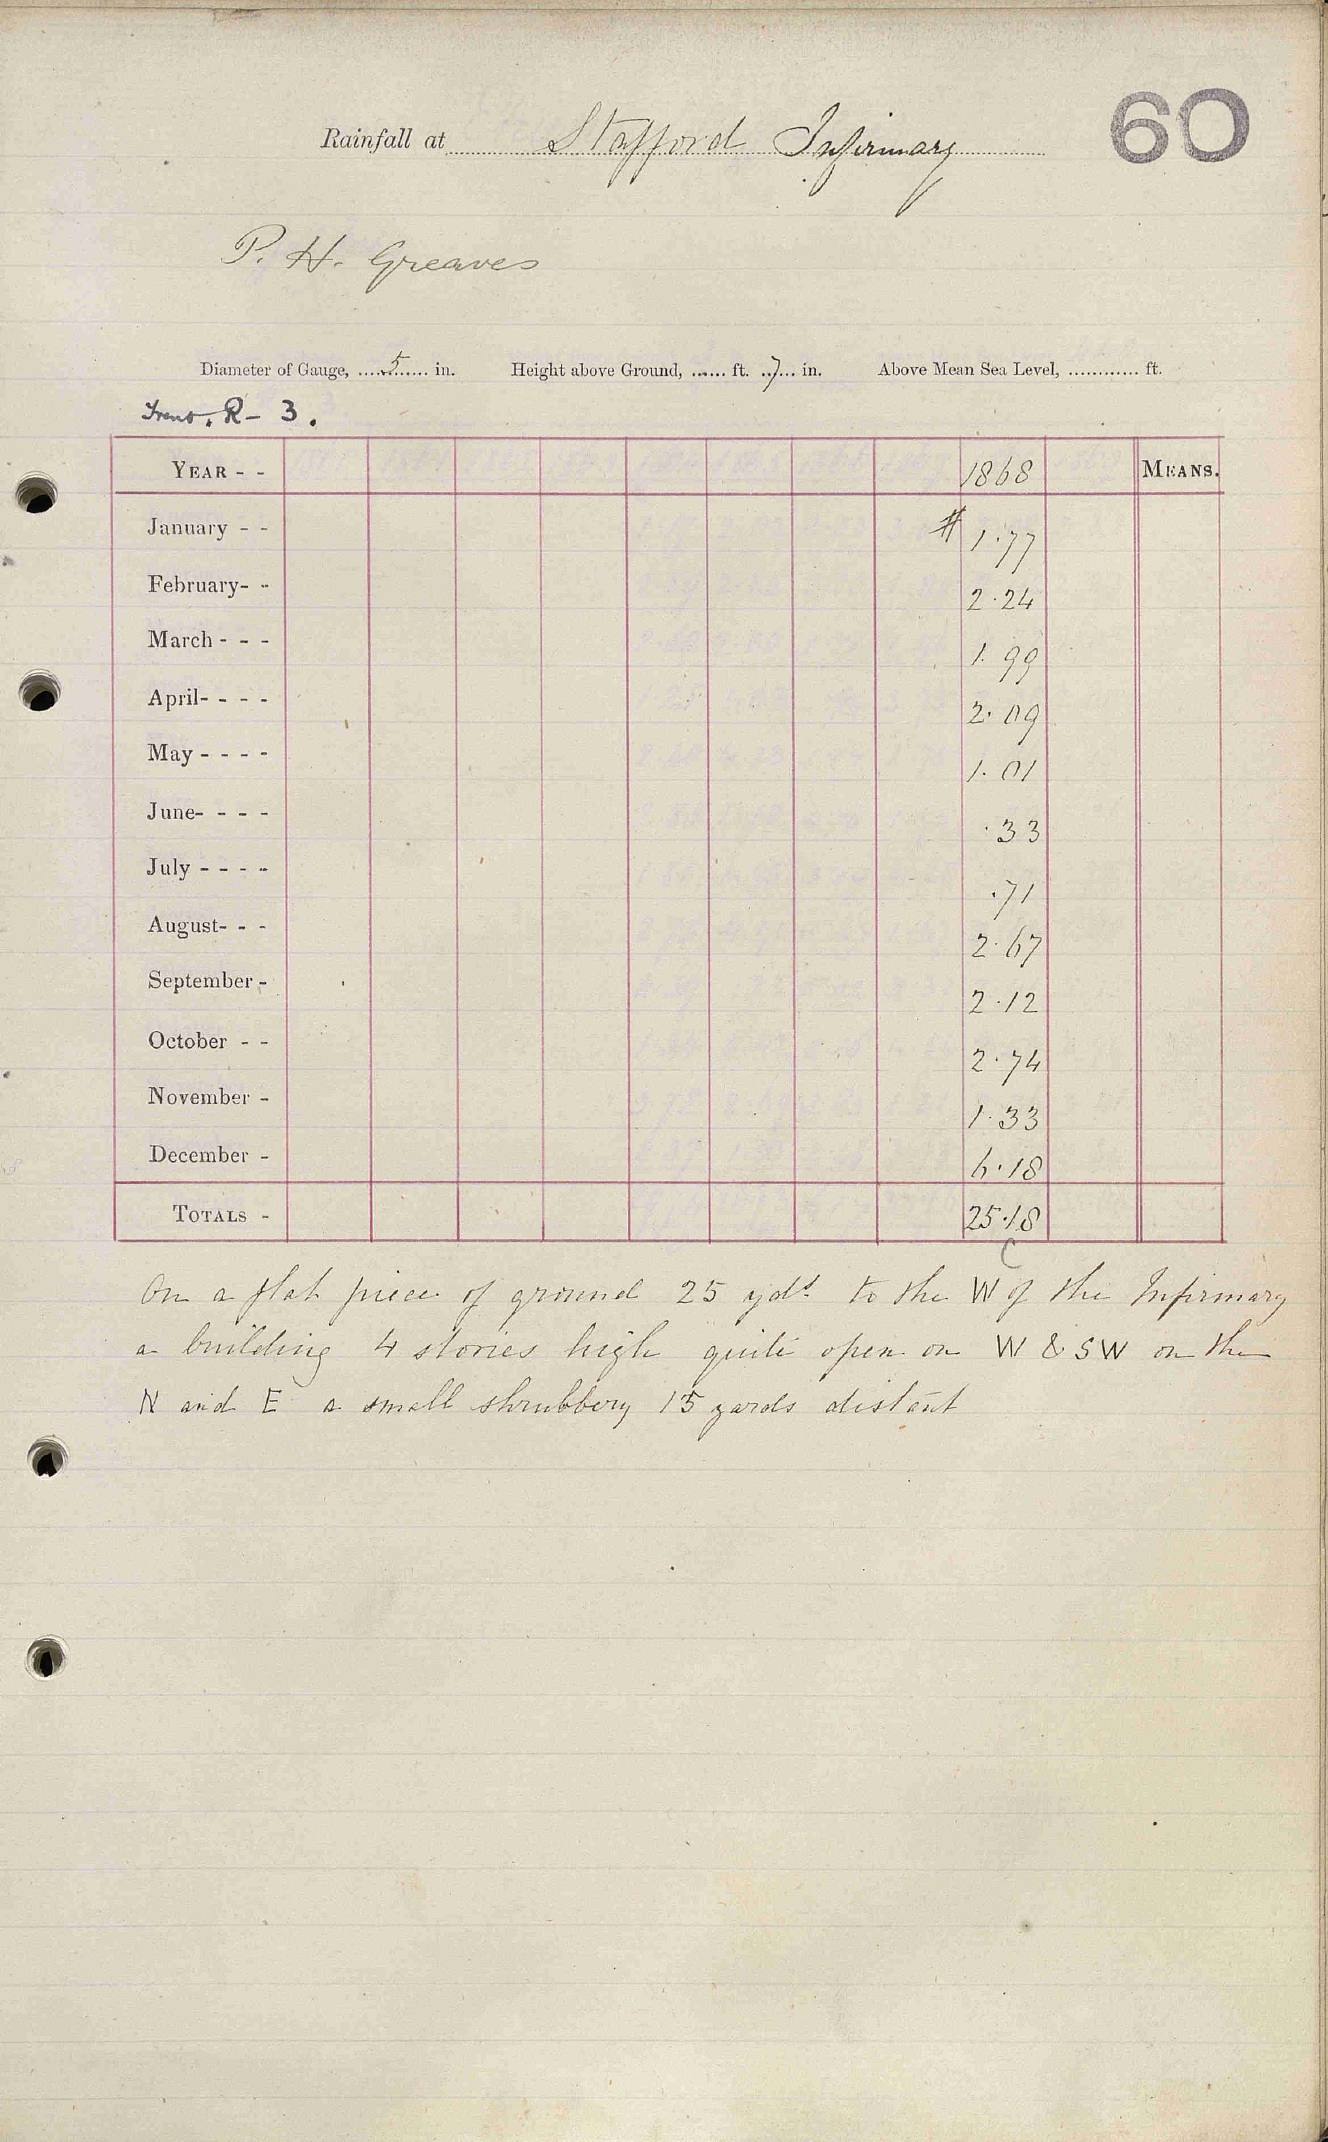 60
Rainfall at Stafford Infirmary
P. H. Greaves
Diameter of Gauge, 5 in. Height above Ground, ...... ft. 7 in. Above Mean Sea Level, ............ ft.
Trent. R - 3.
YEAR - - 1868 MEANS.
January - - # 1.77
February- - 2.24
March - - - 1.99
April- - - - 2.09
May - - - - 1.01
June- - - - .33
July - - - - .71
August- - - 2.67
September - 2.12
October - - 2.74
November - 1.33
December - 6.18
TOTALS - 25.18
C
On a flat piece of ground 25 yds. to the W of the Infirmary
a building 4 stories high quite open on W & SW on the
N and E a small shrubbery 15 yards distant